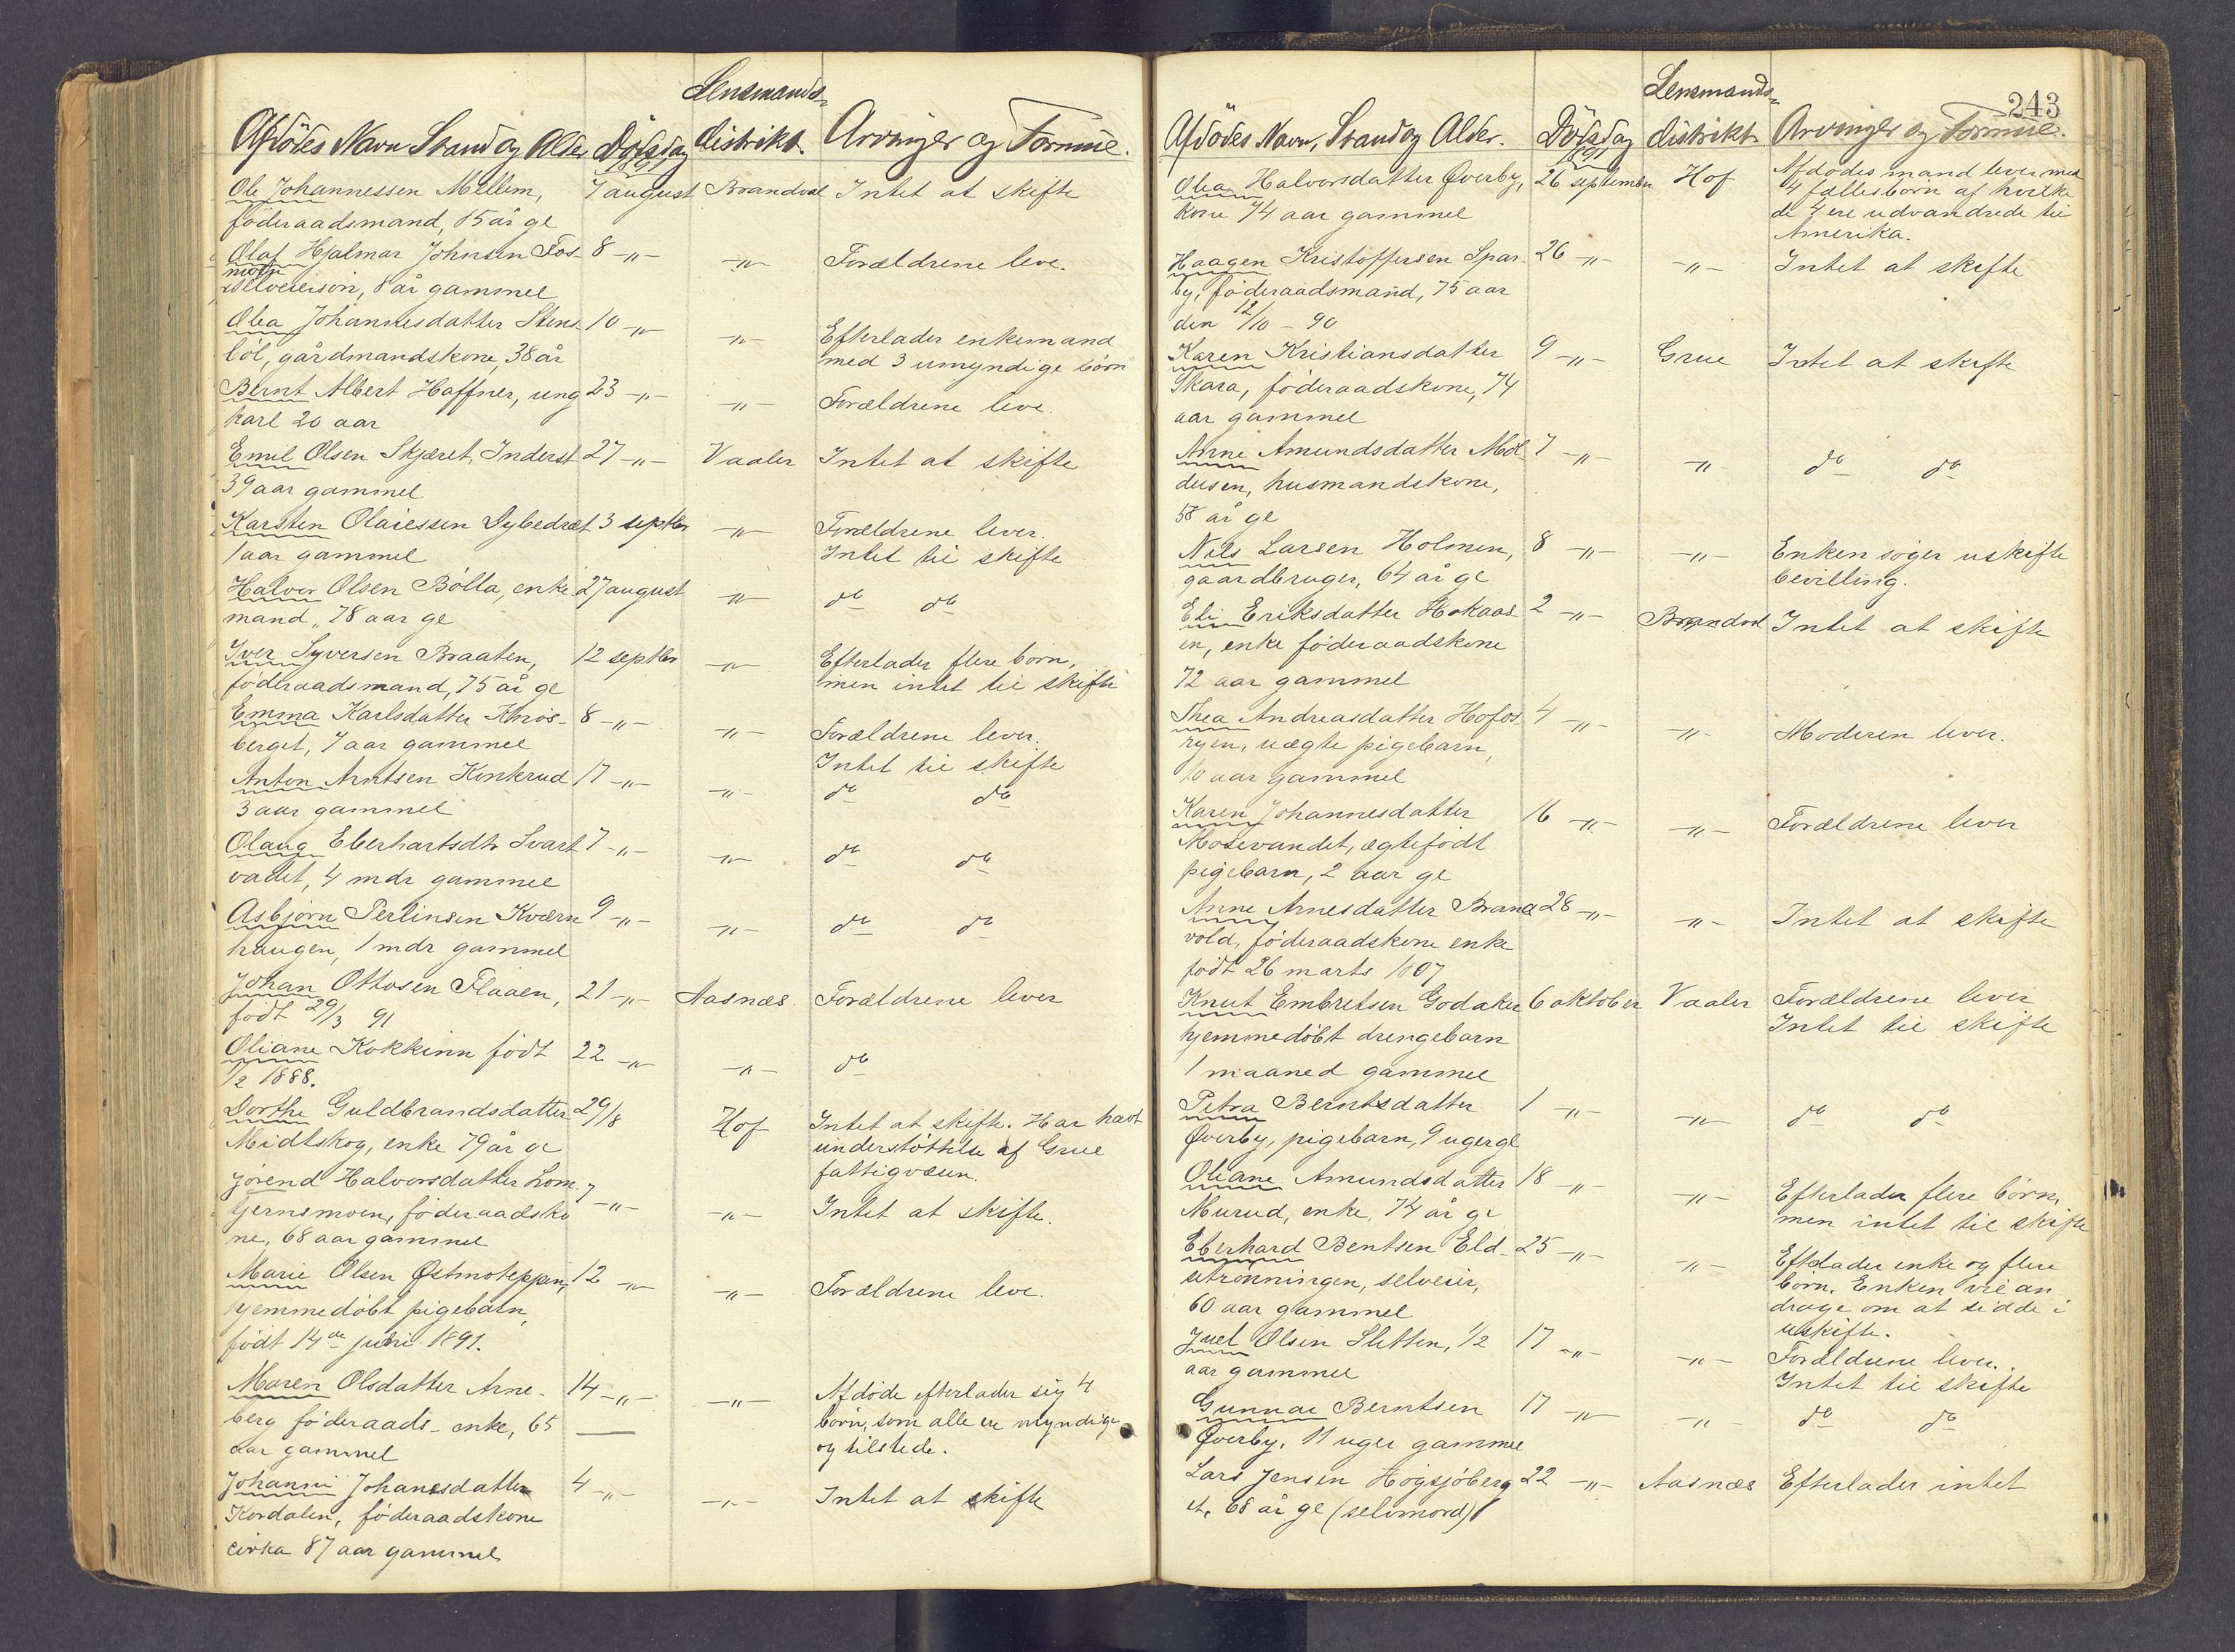 Lensmands-
Afdödes Navn Stand og Alder Dödsdag distrikt. Arvinger og Formue.
1891
Ole Johannessen Mellem, 7 august Brandval Intet at skifte
föderaadsmand, 85 år gl
Olaf Hjalmar Johnsen Fos- 8 -„- -„- Forældrene leve.
mo
selveiersön, 8 år gammel
Olea Johannesdatter Stens- 10 -„- -„- Efterlader enkemand
böl, gårdmandskone, 38 år med 3 umyndige börn
Bernt Albert Haffner, ung 23 -„- -„- Forældrene leve.
karl 20 aar
Emil Olsen Skjæret, Inderst 27 -„- Vaaler Intet at skifte
39 aar gammel
Karsten Olaiessen Dybedræt 3 septbr -„- Forældrene lever.
1 aar gammel Intet til skifte
Halvor Olsen Bölla, enke 27 august -„- do do
mand, 78 aar gl
Iver Syversen Braaten, 12 septbr -„- Efterlader flere börn,
föderaadsmand, 75 år gl men intet til skifte
Emma Karlsdatter Knös- 8 -„- -„- Forældrene lever.
berget, 7 aar gammel Intet til skifte
Anton Arntsen Konkerud 17 -„- -„- do do
3 aar gammel
Olaug Eberhartsdtr Svart 7 -„- -„- do do
vadet, 4 mdr gammel
Asbjörn Perlinsen Kværn 9 -„- -„- do do
haugen, 1 mdr gammel
Johan Ottosen Flaaen, 21 -„- Aasnæs Forældrene lever
födt 29/3 91
Oliane Kokkinn födt 22 -„- -„- do
1/2 1888.
Dorthe Guldbrandsdatter 29/8 Hof Intet at skifte. Har havt
Midtskog, enke 79 år gl understöttelse af Grue
fattigvæsen.
Jörend Halvorsdatter Lom- 7 -„- -„- Intet at skifte.
tjernsmoen, föderaadsko
ne, 68 aar gammel
Marie Olsen Östmoteppen, 12 -„- -„- Forældrene leve.
hjemmedöbt pigebarn,
födt 14de juli 1891.
Maren Olsdatter Arne- 14 -„- -„- Afdöde efterlader sig 4
berg föderaads-enke, 65 börn, som alle er myndige
aar gammel og tilstede.
Johanne Johanesdatter 4 -„- -„- Intet at skifte
Kordalen, föderaadskone
cirka 87 aar gammel
243
Lensmands-
Afdödes Navn, Stand og Alder. Dödsdag distrikt Arvinger og Formue.
1891
Olea Halvorsdatter Överby, 26 september Hof Afdödes mand lever med
kone 74 aar gammel 4 fællesbörn af hvilke
de 4 ere udvandrede til
Amerika.
Haagen Kristoffersen Spar- 26 -„- -„- Intet at skifte
by, föderaadsmand, 75 aar
den 12/10 - 90
Karen Kristiansdatter 9 -„- Grue Intet at skifte
Skara, föderaadskone, 74
aar gammel
Anne Amundsdatter Mol- 7 -„- -„- do do
deusen, husmandskone,
58 år gl
Nils Larsen Holmen, 8 -„- -„- Enken söger uskifte
gaardbruger, 64 år gl bevilling.
Eli Eriksdatter Hokaas- 2 -„- Brandval Intet at skifte
en, enke föderaadskone
72 aar gammel
Thea Andreasdatter Hofos- 4 -„- -„- Moderen lever.
ryen, uægte pigebarn,
10 aar gammel
Karen Johannesdatter 16 -„- -„- Forældrene lever
Mosevandet, ægtefödt
pigebarn, 2 aar gl
Anne Arnesdatter Brand 28 -„- -„- Intet at skifte
vold, föderaadskone enke
födt 26 marts 1807
Knut Embretsen Godaker 6 oktober Vaaler Forældrene lever
hjemmedöbt drengebarn Intet til skifte
1 maaned gammel
Petra Berntsdatter 1 -„- -„- do do
Överby, pigebarn, 9 uger gl
Oliane Amundsdatter 18 -„- -„- Efterlader flere börn,
Murud, enke, 74 år gl men intet til skifte
Eberhard Bentsen Eld- 25 -„- -„- Efterlader enke og flere
setrönningen, selveier, börn. Enken vil an
60 aar gammel drage om at sidde i
uskifte.
Juel Olsen Sletten, 1/2 17 -„- -„- Forældrene lever.
aar gammel Intet til skifte
Gunnar Berntsen 17 -„- -„- do do
Överby, 11 uger gammel
Lars Jensen Högsjöberg 22 -„- Aasnæs Efterlader intet
et, 68 år gl (selvmord)